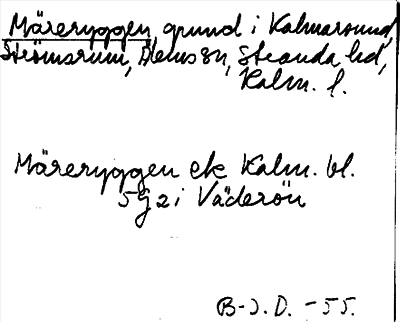 Märeryggen, grund i Kalmarsund,
Strömsrum, Ålems sn, Stranda hd,
Kalm. l.
Märeryggen ek Kalm. bl.
5G2i Väderön
B-J.D. -55.